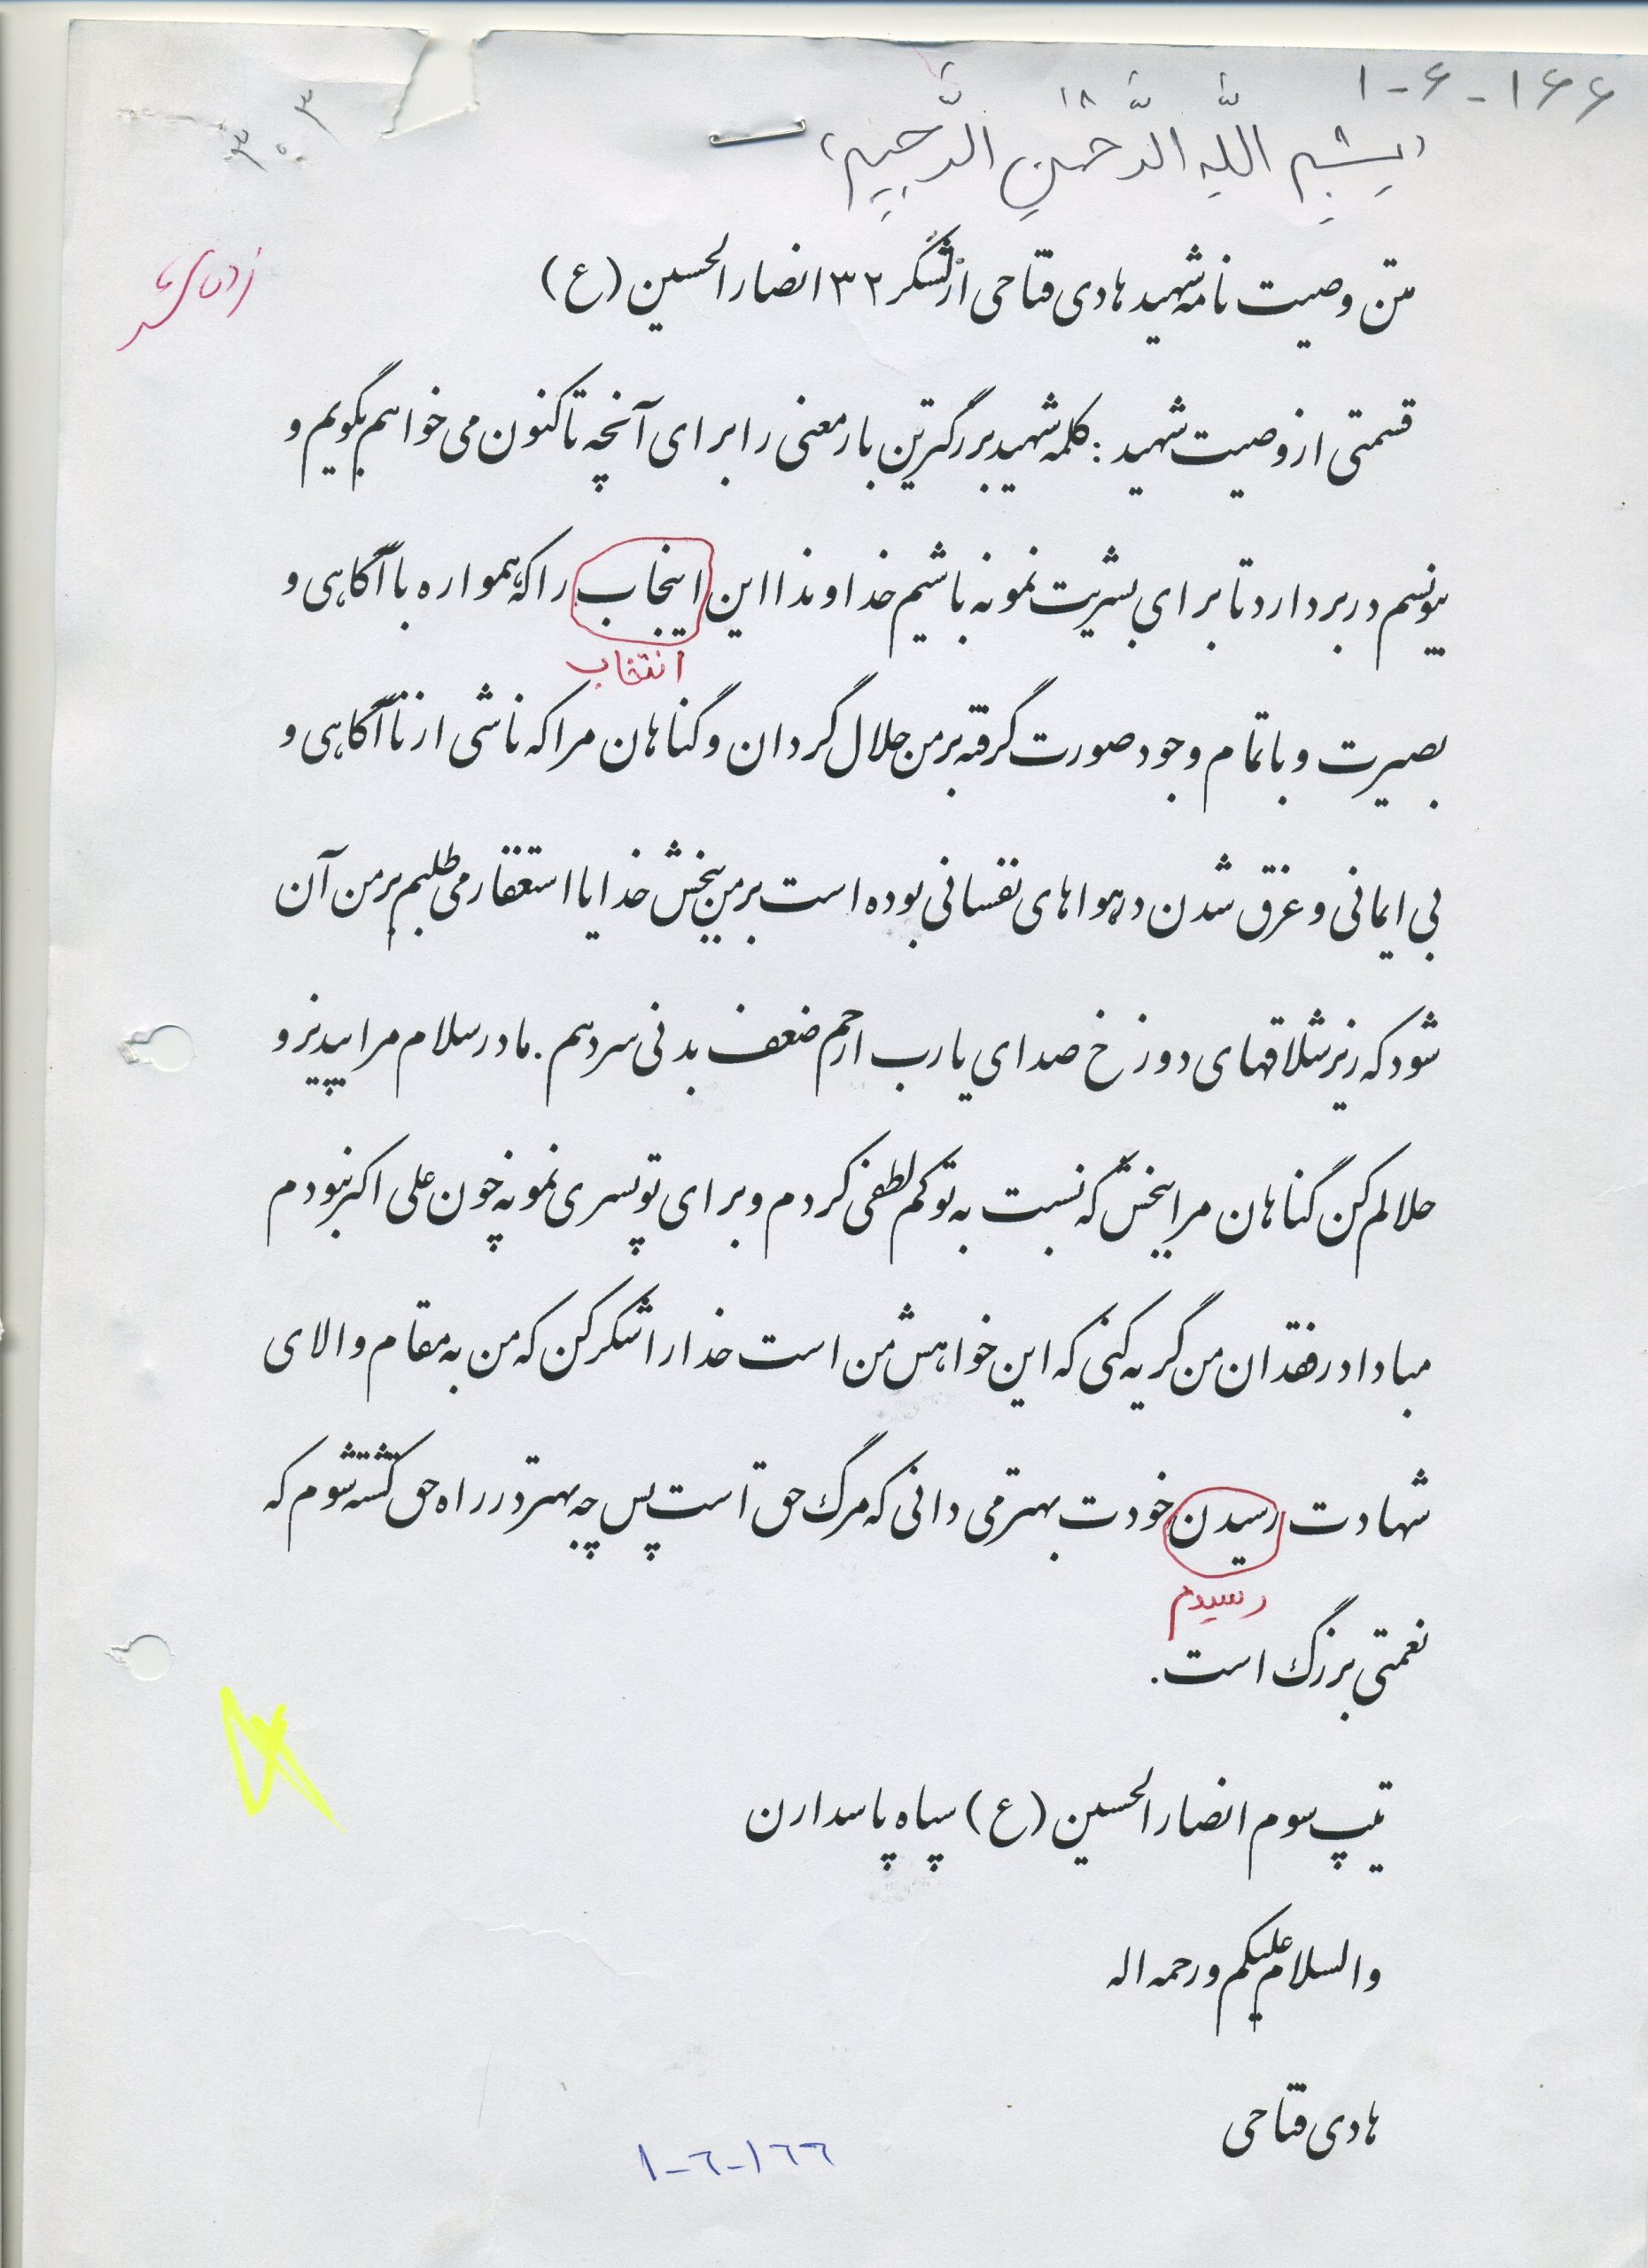 ۱-۶-۱۶۶
بِسْمِ اللَّهِ الرَّحْمنِ الرَّحِيمِ
۳۰۳
متن وصیت نامه شهید هادی فتاحی از لشگر ۳۲ انصار الحسین (ع)
قسمتی از وصیت شهید : کلمه شهید بزرگترین بار معنی را برای آنچه تاکنون می خواهم بگویم و
بنویسم در بر دارد تا برای بشریت نمونه باشیم خداوندا این اینخاب را که همواره با آگاهی و
انتخاب
بصیرت و با تمام وجود صورت گرفته بر من حلال گردان و گناهان مرا که ناشی از ناآگاهی و
بی ایمانی و غرق شدن در هواهای نفسانی بوده است بر من ببخش خدایا استغفار می طلبم بر من آن
شود که زیر شلاقهای دوزخ صدای یارب ارحم ضعف بدنی سر دهم . مادر سلام مرا بپذیر و
حلالم کن گناهان مرا ببخش که نسبت به تو کم لطفی کردم و برای تو پسری نمونه چون علی اکبر نبودم
مبادا در فقدان من گریه کنی که این خواهش من است خدا را شکر کن که من به مقام والای
شهادت رسیدن خودت بهتر می دانی که مرگ حق است پس چه بهتر در راه حق کشته شوم که
رسیدم
نعمتی بزرگ است .
تیپ سوم انصار الحسین (ع) سپاه پاسدارن
والسلام علیکم و رحمه اله
هادی فتاحی
۱-٦-۱٦٦